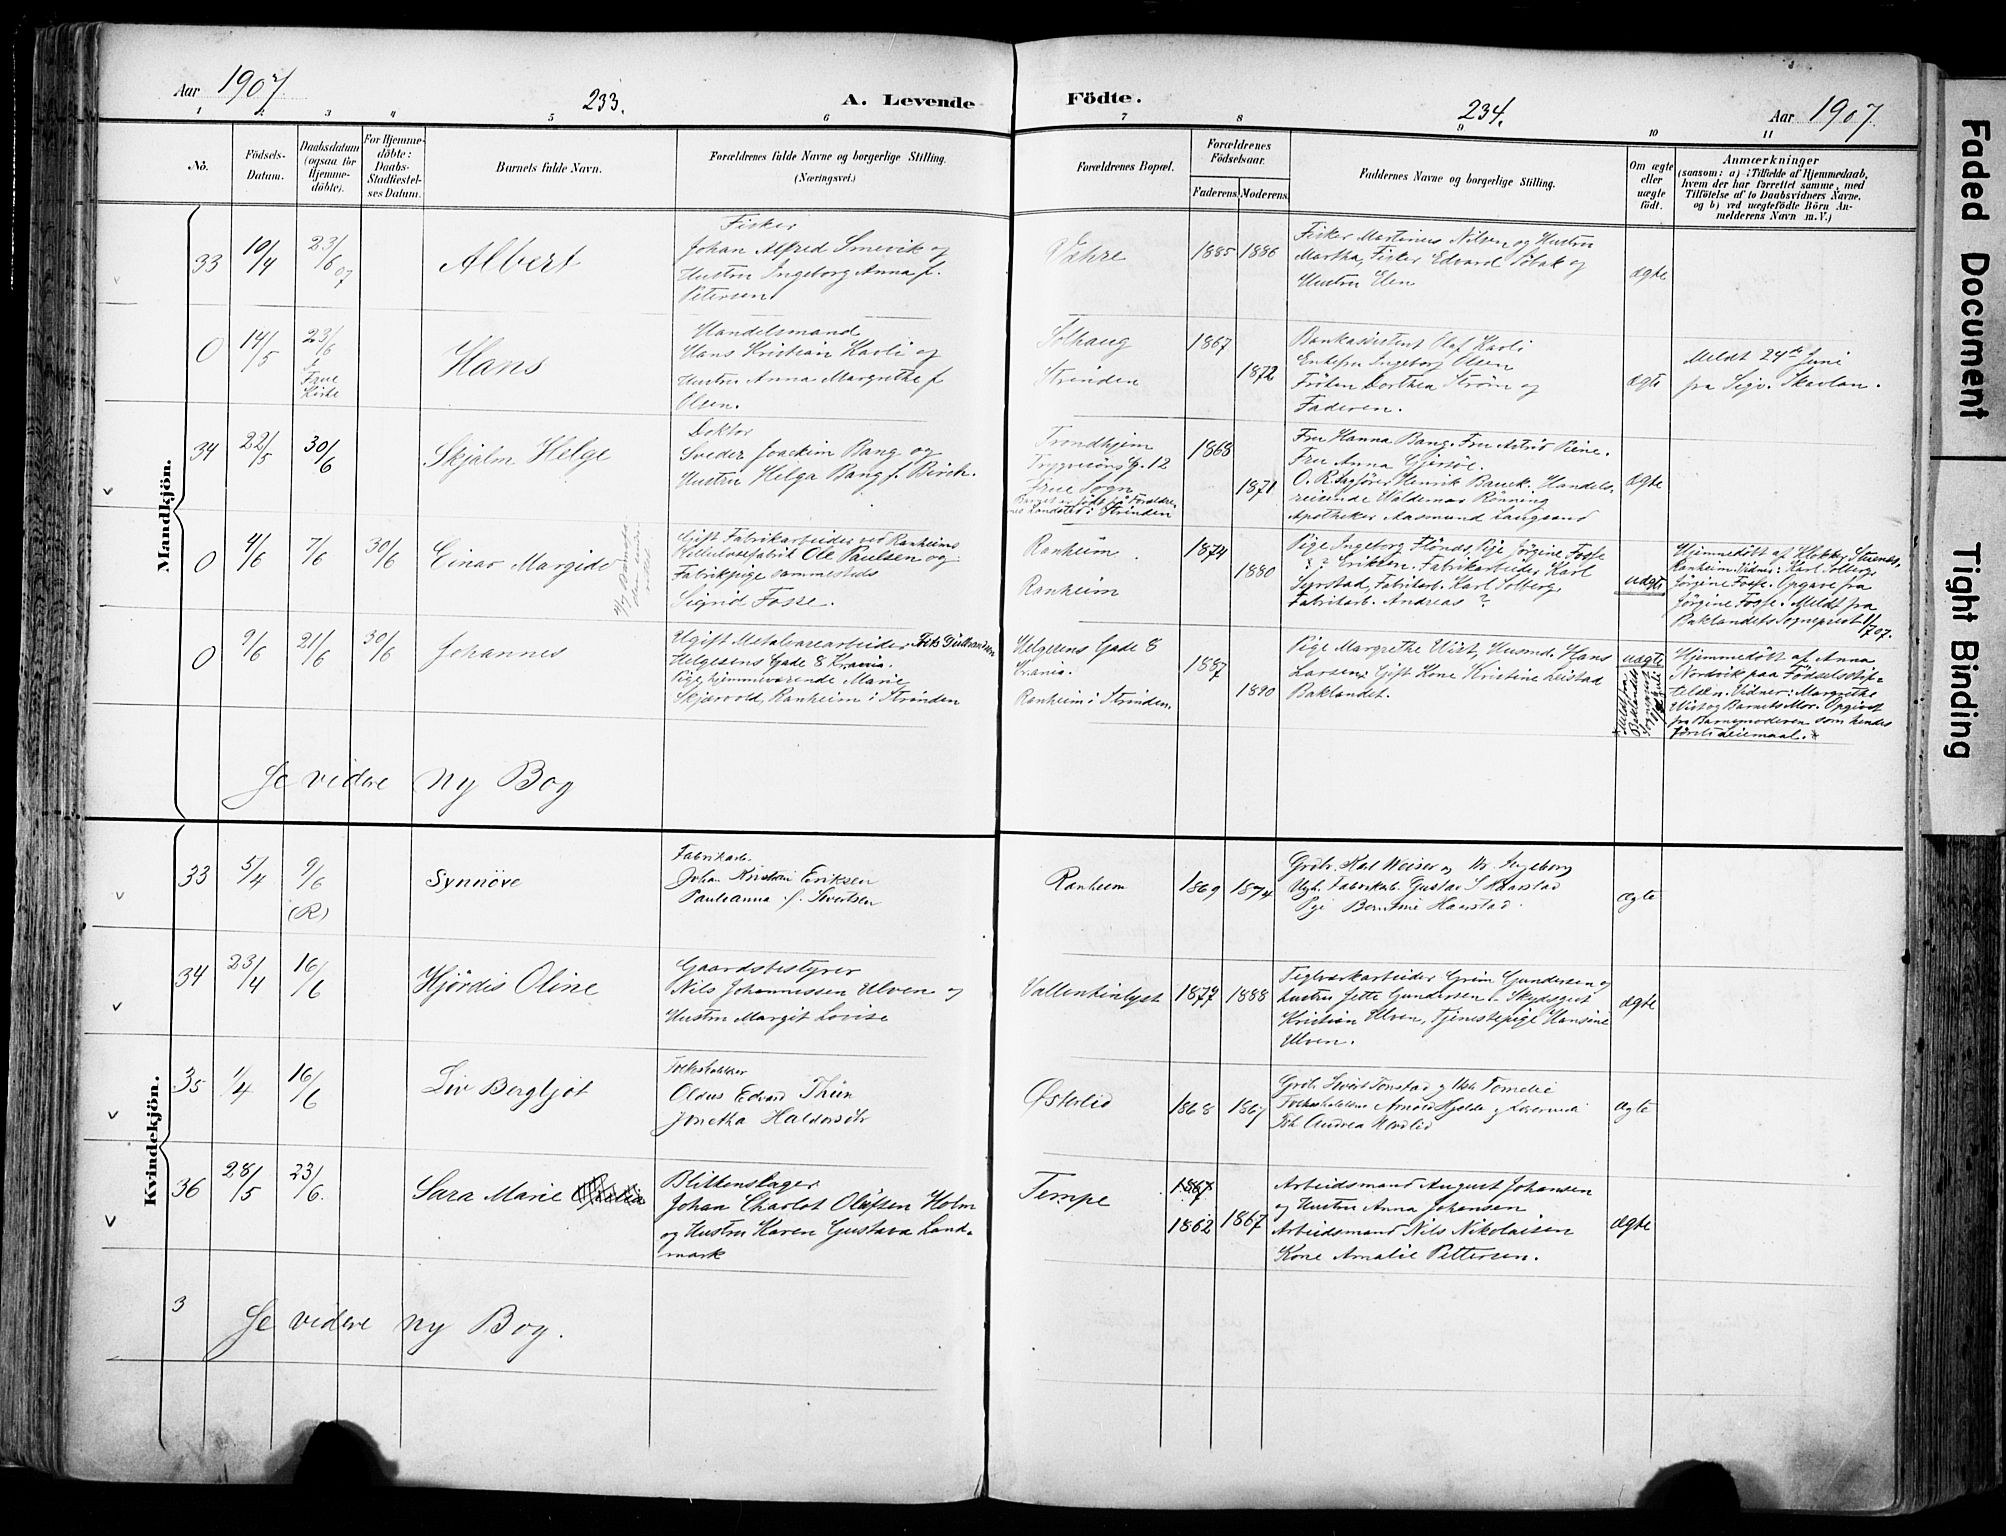 Aar 1907. 233. A. Levende
Födte. 234. Aar 1907.
1 2 3 4 5 6
7 8 9 10 11
No.
Födsels-
Datum.
Daabsdatum
(ogsaa for
Hjemme-
döbte).
For Hjemme-
döbte:
Daabs-
Stadfæstel-
ses Datum.
Barnets fulde Navn.
Forældrenes fulde Navne og borgerlige Stilling.
(Næringsvei.)
Forældrenes Bopæl.
Forældrenes
Födselsaar.
Faderens. Moderens.
Faddernes Navne og borgerlige Stilling.
Om ægte
eller
uægte
födt.
Anmærkninger
(saasom: a) i Tilfælde af Hjemmedaab,
hvem der har forrettet samme, med
Tilföielse af to Daabsvidners Navne,
og b) ved uægtefödte Börn An-
melderens Navn m. V.)
Mandkjön.
33 10/4 23/6 07 Albert
Fisker
Johan Alfred Smevik og
Hustru Ingeborg Anna f.
Petersen
Været 1885 1886
Fisker Martinus Nilsen og Hustru
Martha, Fisker Edvard Söbak og
Hustru Elen
ægte
0 14/5 23/6 i
Frue
Kirke
Hans
Handelsmand
Hans Kristian Kavli og
Hustru Anna Margrethe f
Olsen.
Solhaug
Strinden
1867 1872
Bankassistent Olaf Kavli
Enkefru Ingeborg Olsen
Fröken Dorthea Ström og
Faderen.
ægte
Meldt 24de Juni
fra Sogn. Skavlan.
34 22/5 30/6 Skjalm Helge
Doktor
Sveder Joachim Bang og
Hustru Helga Bang f. Birch.
Trondhjem
Tryggvesöns G. 12
Frue Sogn
Barnet er födt på Forældre-
nes Landsted i Strinden
1868 1871
Fru Hanna Bang. Fru Astrid Piene.
Fru Anna Gjersöe.
O. R. Sagförer Henrik Bauck. Handels-
reisende Valdemar Rönning
Apotheker Aasmund Laugsand
ægte
0 4/6 7/6 30/6 Einar Margido
Gift Fabrikarbeider ved Ranheims
Cellulosefabrik Ole Paulsen og
Fabrikpige sammesteds
Sigrid Fosse.
Ranheim
Ranheim
1874 1880
Pige Ingeborg Flönes, Pige Jörgine Fosse
? ? Eriksen. Fabrikarbeider Karl
Syrstad, Fabrikarb. Karl Solberg
Fabrikarb. Andreas ?
uægte
Hjemmedöbt af Klokker Steenes,
Ranheim. Vidner: Karl Solberg
Jörgine Fosse. Opgave fra
Jörgine Fosse. Meldt fra
Baklandets Sogneprest 1/7 07.
0 9/6 21/6 30/6 Johannes
Ugift Metalvarearbeider Fritz Gulbrandsen
Helgesens Gade 8 Krania.
Pige, hjemmeværende Marie
Skjærvold, Ranheim i Strinden
Helgesens Gade 8
Krania.
Ranheim i Strinden.
1887 1890
Pige Margrethe Wist, Husmd. Hans
Larsen, Gift Kone Kristine Leistad
Baklandet.
uægte
Hjemmedöbt af Anna
Nordvik paa Födselsstif-
telsen. Vidner: Margrethe
Wist og Barnets Mor. Opgivet
fra Barnemoderen som hendes
förste Leiermaal. *
* Meldt fra
Baklandets
Sogneprest
Se videre ny Bog
Kvindekjön.
33 5/4 9/6 (R) Synnöve
Fabrikarb.
Johan Kristian Eriksen
Paulianna f. Sivertsen
Ranheim 1869 1874
Grdbr. Karl Weiser og Hr. Ingeborg
Ugk. Fabrikarb. Gustav S Haarstad
Pige Berntine Haarstad.
ægte
34 23/4 16/6 Hjördis Oline
Gaardsbestyrer
Nils Johannessen Ulven og
Hustru Margit Lovise
Vallentinlyst 1877 1888
Teglværkarbeider Grim Gundersen og
Hustru Jette Gundersen. Skydsgut
Kristian Ulven, Tjenestepige Hansine
Ulven.
ægte
35 1/4 16/6 Liv Bergljot
Folkeholder
Oldus Edvard Thun
Jonetha Haldorsdtr
Østerlid 1868 1867
Grdbr Sivert Tonstad og Hustr Tomelie
Folkeholder Arnold Hjelde og Lovernda
Pik Andrea Nordlid
ægte
36 28/5 23/6. Sara Marie
Blikkenslager
Johan Charlot Olufsen Holm
og Hustru Karen Gustava Land-
mark
Tempe 1867 1862 1867
Arbeidsmand August Johansen
og Hustru Anna Johansen
Arbeidsmand Nils Nikolaisen
Kone Amalie Pettersen.
ægte
3
Se videre ny Bog.
Faded Document
Tight Binding